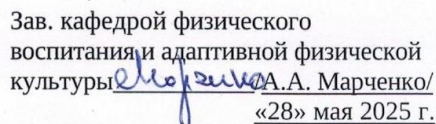 Зав. кафедрой физического
воспитания и адаптивной физической
культуры Марченко /А.А. Марченко/
«28» мая 2025 г.